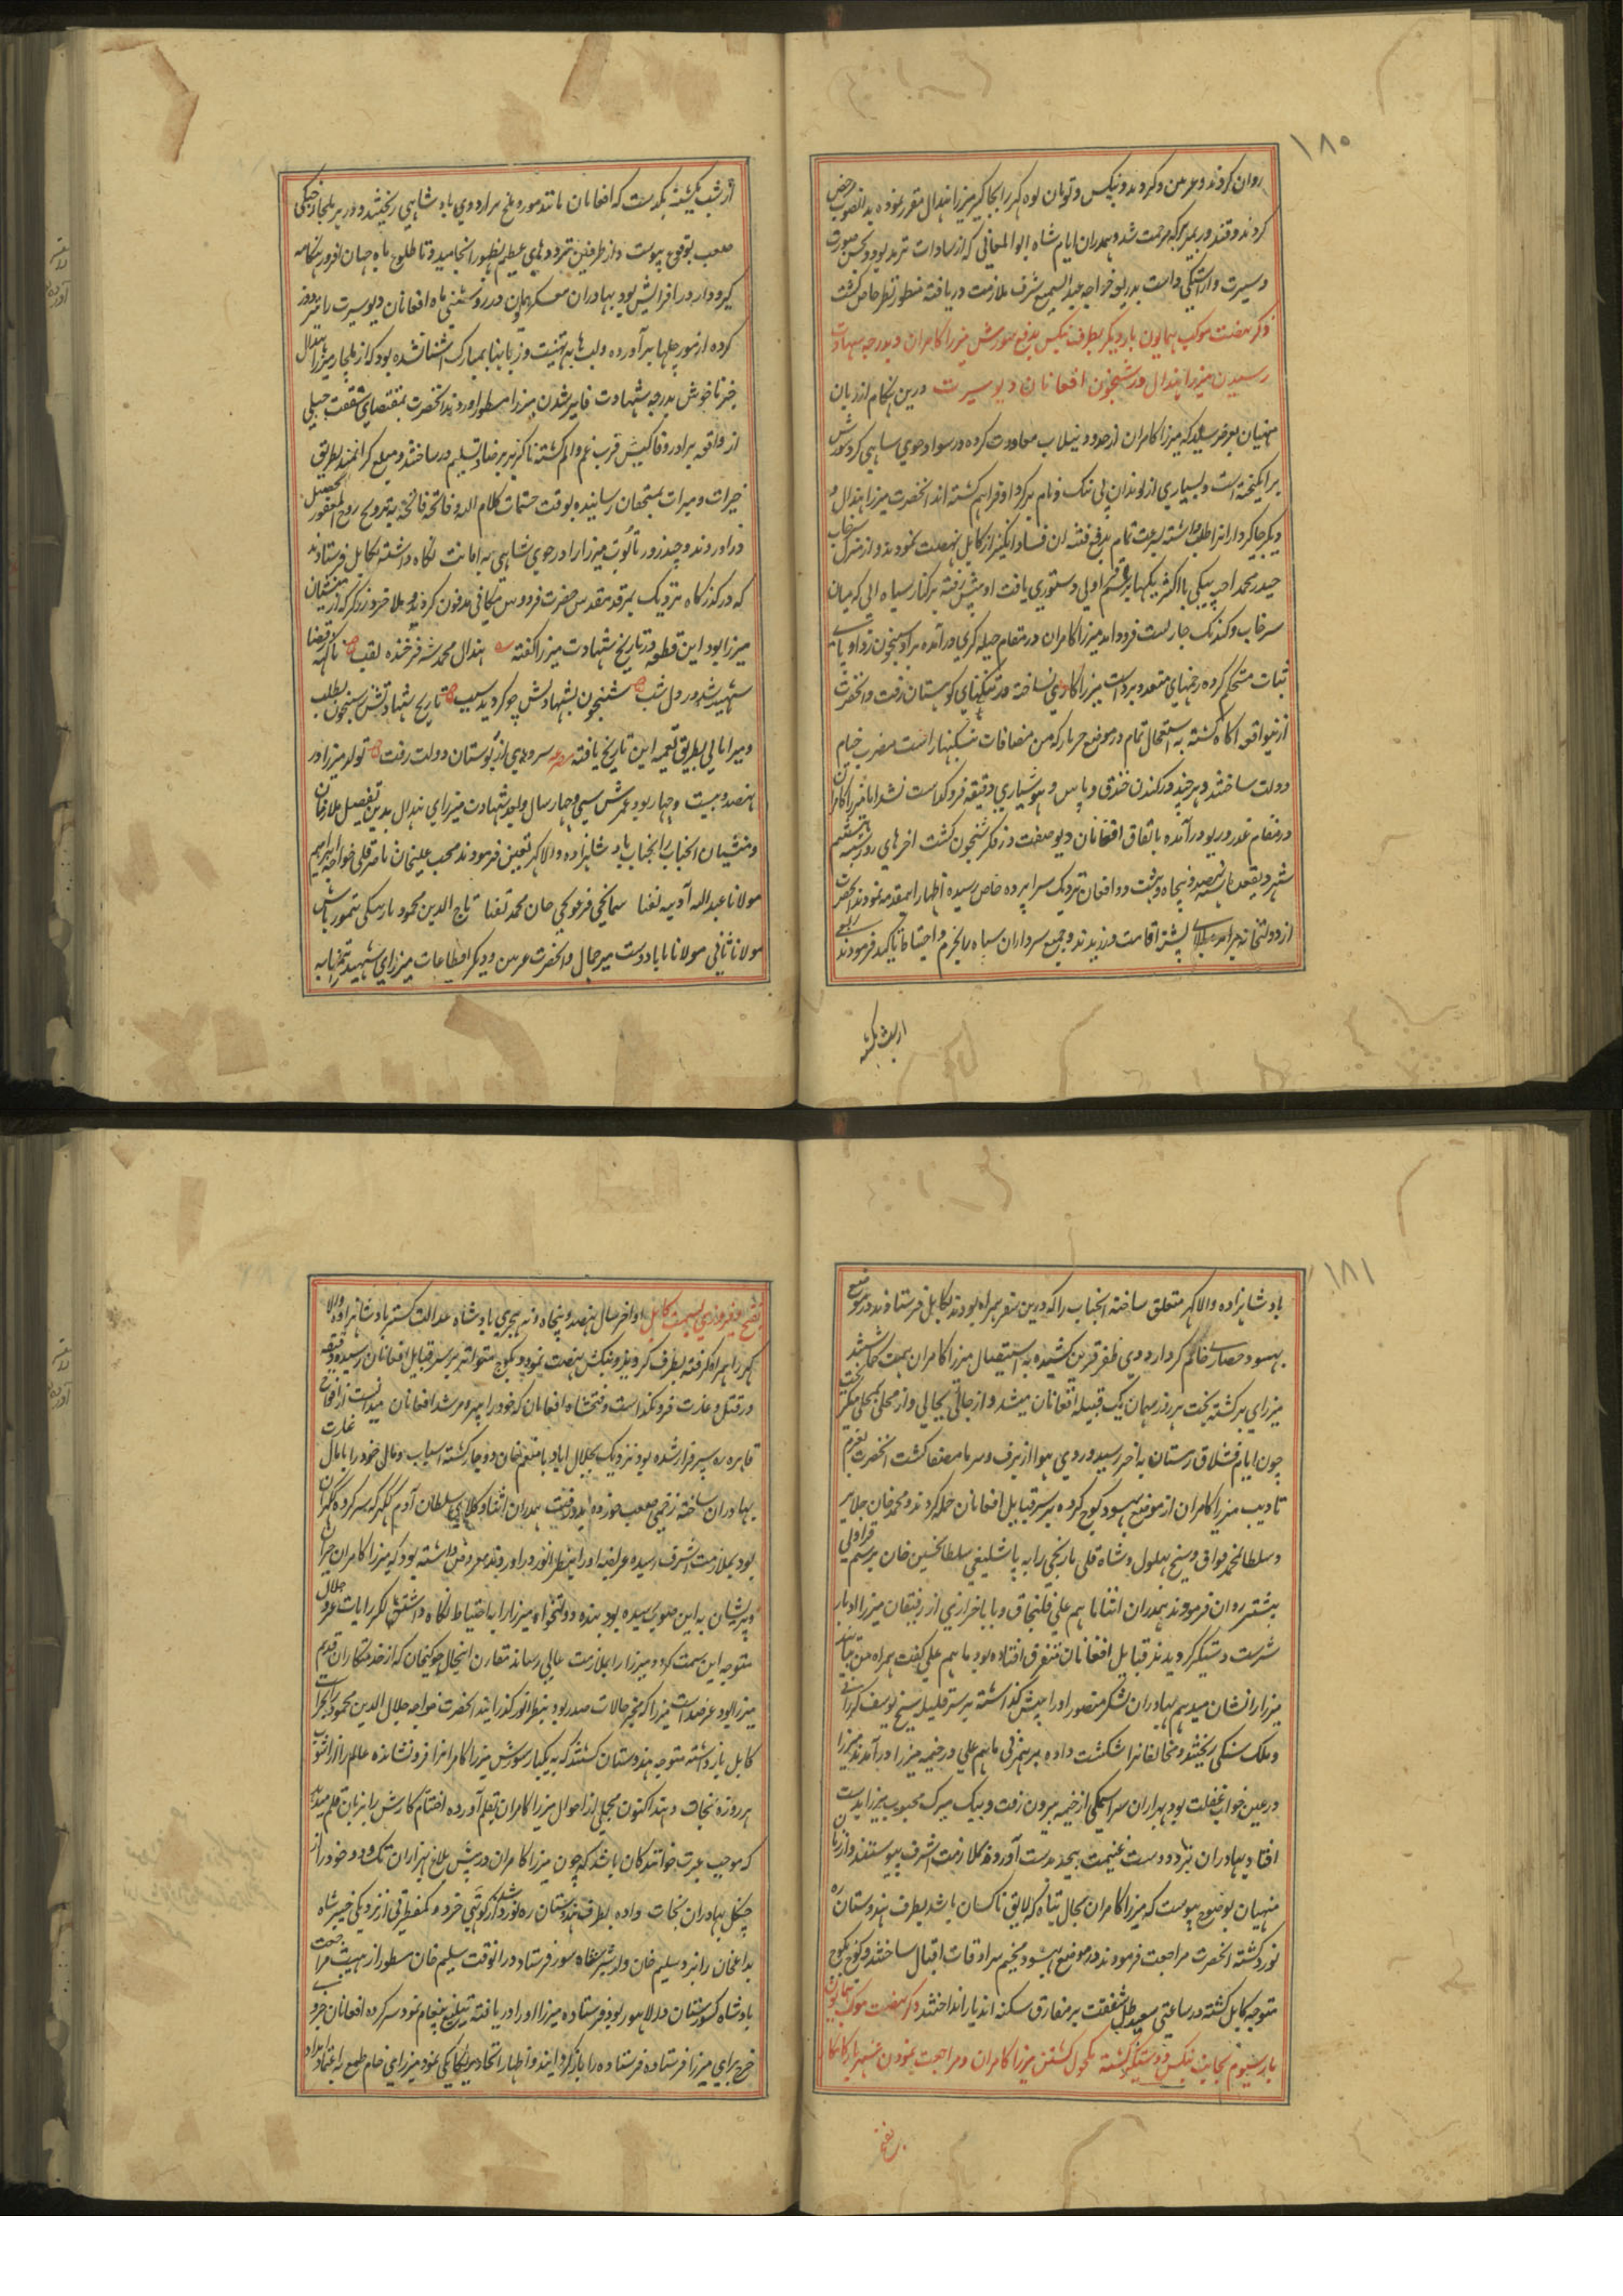 ۱۸۰
روان کردند و غزنین و کردیز و بنکش و تومان لوهکر را بجاکیر میرزا هندال مقرر نموده بدانصوب مرخص
کردند و قندوز بمیر برکه مرحمت شد و همدران ایام شاه ابوالمعالی که از سادات ترمذ بود و بحسن صورت
و سیرت واراستکی داشت بدریعه خواجه عبدالسمیع شرف ملازمت دریافته منظور نظر خاص کشت
ذکر نهضت موکب همایون بار دیکر بطرف بنکش بدفع شورش میرزا کامران و بدرجه شهادت
رسیدن میرزا هندال در شبخون افغانان دیو سیرت درین هنکام از زبان
منهیان بعرض رسید که میرزا کامران از حدود نیلاب معاودت کرده در سواد جوی شاهی کرد شورش
برانکیخته است و بسیاری از لوندان بی ننک و نام برکرد او فراهم کشته اند انحضرت میرزا هندال و
دیکر جاکیرداران را طلب داشته بسرعت تمام بدفع فتنه ان فساد انکیز از کابل نهضت نمودند و از منزل سرخاب
حیدر محمد اخته بیکی با اکثر یکها برسم اولی دستوری یافت او پیش رفته برکنار سیاه اب که میان
سرخاب و کندمک جاریست فرود امد میرزا کامران در مقام حیله کری درآمده براو شبخون زد او پای
ثبات مستحکم کرده زخمهای متعدد برداشت میرزا کاری نساخته در تنکنای کوهستان رفت و انحضرت
ازینواقعه اکاه کشته به استعجال تمام در موضع جریار که من مضافات ننکنهار است مضرب خیام
دولت ساختند و هر چند در کندن خندق و پاس و هوشیاری دقیقه فرو کداست نشد اما میرزا کامران
در مقام غدر و ریو درآمده باتفاق افغانان دیو صفت در فکر شبخون کشت اخرهای روز یکشنبه بیستم
شهر ذیقعده سنه نهصد و پنجاه و هشت دو افغان نزدیک سراپرده خاص رسیده اظهار اینمقدمه نمودند انحضرت
از دولتخانه برامده ببالای پشته اقامت ورزیدند و جمیع سرداران سپاه را بحزم و احتیاط تاکید فرمودند
از شب یکشنبه
از شب یکشنبه بکدست که افغانان مانند مور و ملخ بر اردوی پادشاهی ریختند و در پر بلجار جنکی
صعب بوقوع پیوست و از طرفین ترددهای عظیم بظهور انجامید و تا طلوع ماه جهان افروز هنکامه
کیرودار در افزایش بود بهادران معسکر همایون در روشنی ماه افغانان دیو سیرت را نیزه دوز
کرده از مورچلها برآورده و لبها به تهنیت و زبانها بمبارک اشنا نشده بود که از بلجار میرزا هندال
خبر ناخوش بدرجه شهادت فایز شدن میرزا مسطور اوردند انحضرت بمقتضای شفقت جبلی
از واقعه برادر وفاکیش قرین غم و الم کشته ناکزیر برضا و تسلیم در ساختند و مبلغ کرانمند بطریق
خیرات و مبرات بمستحقان رسانیده بوقت ختمات کلام الله و فاتحه فایحه به ترویح روح المغفور تحصیل
دراوردند و چند روز تابوت میرزا را در جوی شاهی به امانت نکاه داشته بکابل فرستادند
که در کذرکاه نزدیک بمرقد مقدس حضرت فردوس مکانی مدفون کردید و ملا خرد زرکر که از منشیان
میرزا بود این قطعه در تاریخ شهادت میرزا کفته هندال محمد شه فرخنده لقب ناکه ز قضا
شهید شد در دل شب شبخون بشهادتش چو کردید سبب تاریخ شهادتش ز شبخون بطلب
و میر امانی بطریق تعمیه این تاریخ یافته مصرعه سروی از بوستان دولت رفت تولد میرزا در
نهصد و بیست و چهار بود عمرش سی و چهار سال و بعد شهادت میرزای هندال بدین تفصیل ملازمان
و منتسبان انجناب را بجناب پادشاهزاده والاکهر تعیین فرمودند محب علیخان ناصر قلی خواجه ابراهیم
مولانا عبدالله آدینه تغنا سمانجی قرغوجی جان محمد تغنا تاج الدین محمود باربیکی تیمورتاش
مولانا ثانی مولانا بابا دوست میر جمال و انحضرت غزنین و دیکر اقطاعات میرزای شهید تمهابه
۱۸۱
پادشاهزاده والاکهر متعلق ساخته انجناب را که درین سفر همراه بودند بکابل فرستادند در موضع
بهسود حصاری محکم کرد اردوی ظفر قرین کشیده به استیصال میرزا کامران همت کماشتند
میرزای برکشته بخت هر روز میهمان یک قبیله افغانان میشد و از جایی بجایی و از محلی بمحلی میکریخت
چون ایام قشلاق زمستان به اخر رسید و روی هوا از برف و سرما مصفا کشت انحضرت بعزم
تادیب میرزا کامران از موضع بهسود کوچ کرده بر سر قبایل افغانان حمله کردند و محمد خان جلایر
و سلطان محمد فواق و شیخ بهلول و شاه قلی نارنجی را به پاشلیغی سلطان حسین خان برسم قراولی
پیشتر روان فرمودند همدران اثنا ماهم علی قلیخان و بابا خرازی از رفیقان میرزا
دستکیر کردیدند قبایل افغانان متفرق افتاده بود ماهم علی کفت همراه من بیائید
میرزا را نشان میدهم بهادران لشکر منصور او را پیش کداشته بر سر قلیله شیخ یوسف کررانی
و ملک سنکی ریختند و مخالفانرا شکست داده برهنمونی ماهم علی در خیمه میرزا درآمدند میرزا
در عین خواب غفلت بود بهزاران سراسیمکی از خیمه بیرون رفت و بیک میرک محبوب میرزا بدست
افتاد بهادران با غنیمت بیحد بدست آورده ملازمت اشرف پیوستند و از زبان
منهیان بوضوح پیوست که میرزا کامران بحال تباه که لایق ناکسان باشد بطرف هندوستان ره
نورد کشته انحضرت مراجعت فرمودند در موضع بهسود مخیم سرادقات اقبال ساختند و کوچ بکوچ
متوجه کابل کشته در ساعتی سعید ظل شفقت بر مفارق سکنه اندیار انداختند ذکر نهضت موکب همایون
بار سیوم بجانب بنکش و دستکیر کشته مکحول کشتن میرزا کامران و مراجعت نمودن شهریار کامکار
بفتح
بفتح و فیروزی بسمت کابل اواخر سال نهصد و پنجاه و نه هجری پادشاه عدالت کستر پادشاهزاده والا
کهر را همراه کرفته بطرف کردیز و بنکش نهضت نمود و بکوچ متواتر بر سر قبایل افغانان رسیده دقیقه
در قتل و غارت فرو نکذاست و فتحشاه افغانان که خود را پیر و مرشد افغانان میدانست از افواج
قاهره ره سپر فرار شده بود نزدیک بجلال اباد با منعم خان دوچار کشته اسباب و مال خود را پامال غارت
بهادران ساخته زخمی صعب خورده بدر رفت همدران اثنا وکلای سلطان آدم ککهر که سرکرده ککهران
بود بملازمت اشرف رسیده عرایض او را بنظر انور دراوردند معروض داشته بود که میرزا کامران حیران
و پریشان به این صوب رسیده بود بنده دولتخواه میرزا را به احتیاط نکاه داشته اکر رایات جلال
متوجه این سمت کردد میرزا را بملازمت عالی رساند مقارن اینحال جوکیخان که از خدمتکاران قدیم
میرزا بود عرضداشت میرزا که مخبر حالات صدر بود بنظر انور کذرانید انحضرت خواجه جلال الدین محمود را بحراست
کابل باز داشته متوجه هندوستان کشتند که به یکبار شورش میرزا کامرانرا فرو نشانده عالم را از اشوب
هر روزه نجات دهند اکنون مجملی از احوال میرزا کامران بقلم آورده اختتام کارش را بزبان قلم میدهد
که موجب عبرت خوانندکان باشد که چون میرزا کامران در پیش بلاغ بهزاران تک و دو خود را از
چنکل بهادران نجات داده بطرف هندوستان ره نورد شد از کوتهی خرد و کمفطرتی از نزدیکی خیبر شاه
بداغخان را نزد سلیم خان ولد شیرخان سور فرستاد درانوقت سلیم خان مسطور از مهیب مراجعت
پادشاه کشورستان در لاهور بود فرستاده میرزا او را دریافته تبلیغ پیغام نمود سرکرده افغانان جزوی
خرج برای میرزا فرستاده فرستاده را باز کردانید و اظهار اتحاد یکانکی نمود میرزای خام طمع به اعتماد امداد